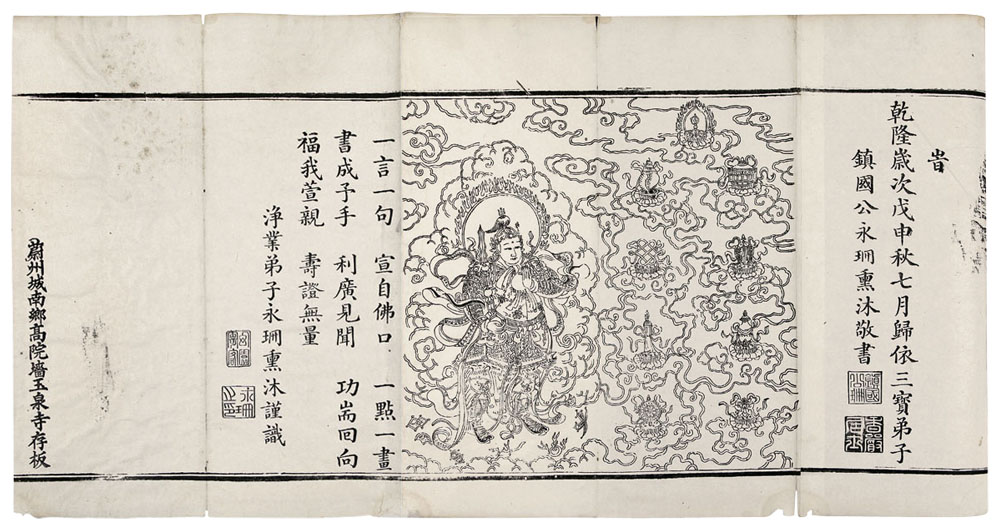 旹
乾隆歲次戊申秋七月歸依三寶弟子
鎮國公永珊熏沐敬書
一言一句　宣自佛口　一點一畫
書成予手　利廣見聞　功耑回向
福我萱親　壽證無量
淨業弟子永珊熏沐謹識
永珊之印
蔚州城南鄉高院墻玉泉寺存板